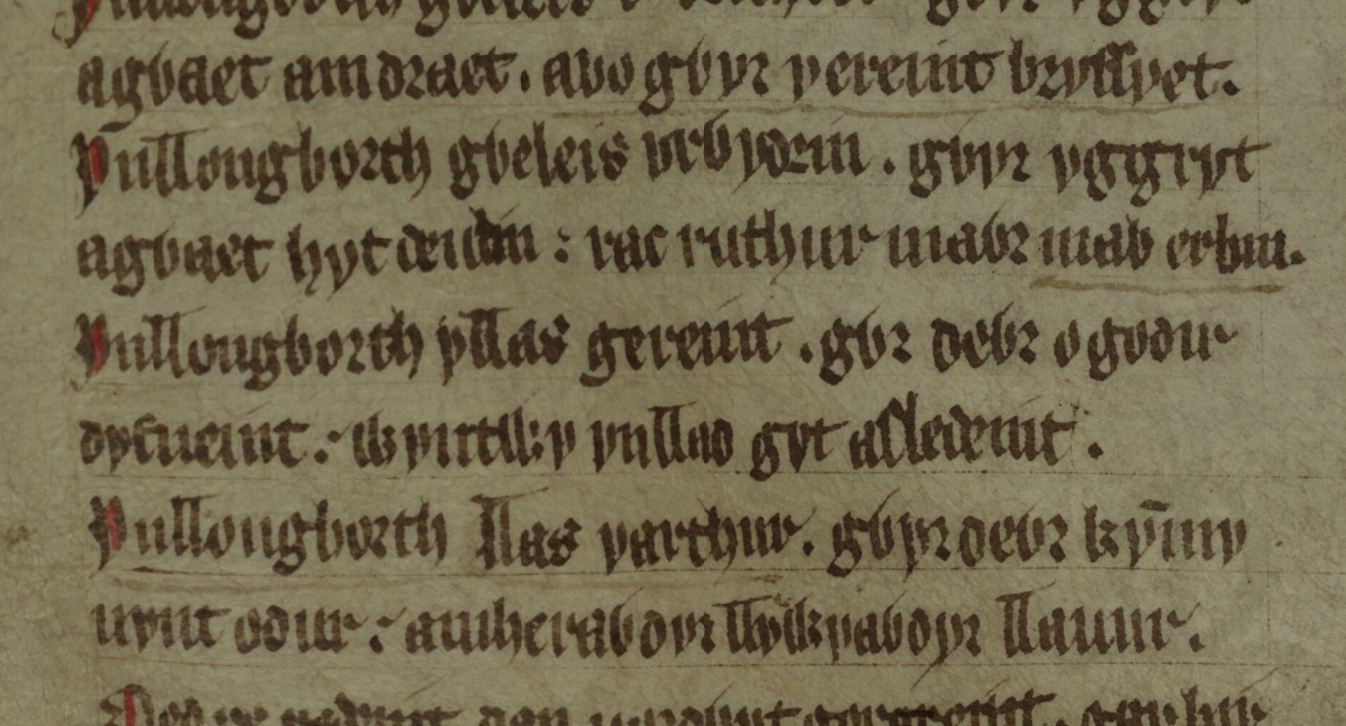 agỽaet am draet. a ỽo gỽyr gereint bryssyet.
Ynllongborth gỽeleis vrỽydrin. gỽyr yggryt
agỽaet hyt deulin: rac ruthur maỽr mab erbin.
Ynllongborth yllas gereint. gỽr deỽr o godir
dyfneint: ỽyntỽy yn llad gyt as ledeint.
Ynllongborth llas yarthur. gỽyr deỽr kymy
nynt o dur: amheraỽdyr llyỽyaỽdyr llauur.